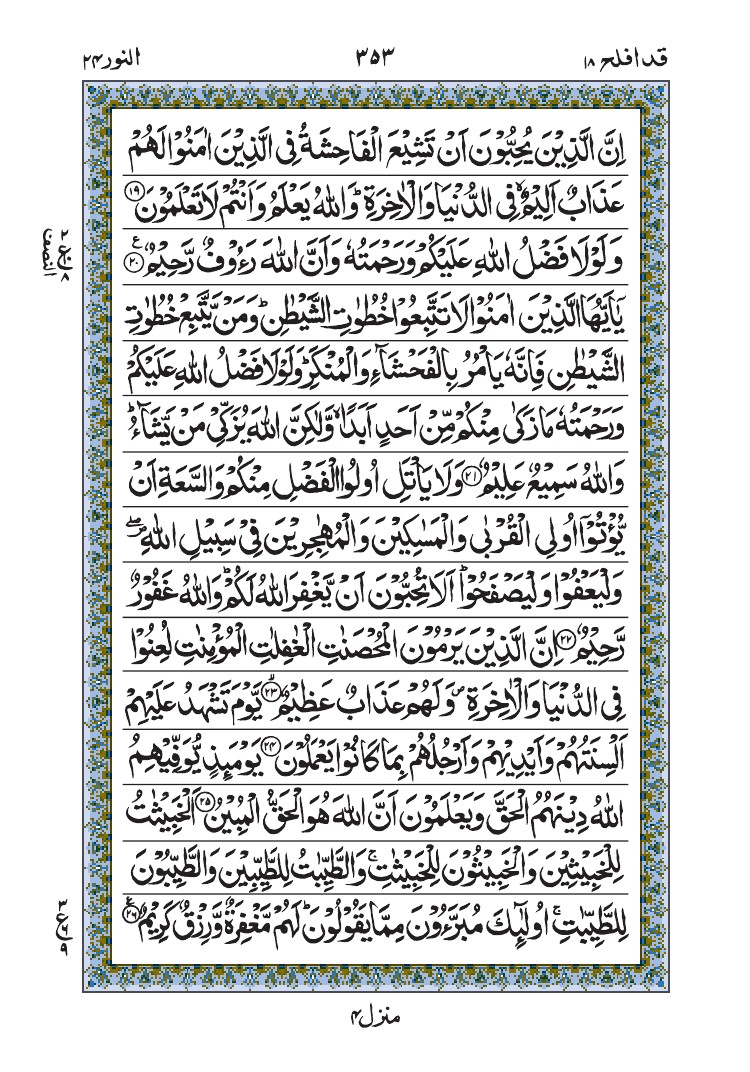 قد افلح ۱۸
۳۵۳
النور ۲۴
اِنَّ الَّذِیْنَ یُحِبُّوْنَ اَنْ تَشِیْعَ الْفَاحِشَةُ فِی الَّذِیْنَ اٰمَنُوْا لَهُمْ
عَذَابٌ اَلِیْمٌۙ فِی الدُّنْیَا وَالْاٰخِرَةِؕ وَاللّٰهُ یَعْلَمُ وَاَنْتُمْ لَا تَعْلَمُوْنَ ۱۹
وَلَوْلَا فَضْلُ اللّٰهِ عَلَیْكُمْ وَرَحْمَتُهٗ وَاَنَّ اللّٰهَ رَءُوْفٌ رَّحِیْمٌ ۲۰ ع
یٰۤاَیُّهَا الَّذِیْنَ اٰمَنُوْا لَا تَتَّبِعُوْا خُطُوٰتِ الشَّیْطٰنِؕ وَمَنْ یَّتَّبِعْ خُطُوٰتِ
الشَّیْطٰنِ فَاِنَّهٗ یَاْمُرُ بِالْفَحْشَآءِ وَالْمُنْكَرِؕ وَلَوْلَا فَضْلُ اللّٰهِ عَلَیْكُمْ
وَرَحْمَتُهٗ مَا زَكٰی مِنْكُمْ مِّنْ اَحَدٍ اَبَدًاۙ وَّلٰكِنَّ اللّٰهَ یُزَكِّیْ مَنْ یَّشَآءُؕ
وَاللّٰهُ سَمِیْعٌ عَلِیْمٌ ۲۱ وَلَا یَاْتَلِ اُولُوا الْفَضْلِ مِنْكُمْ وَالسَّعَةِ اَنْ
یُّؤْتُوْۤا اُولِی الْقُرْبٰی وَالْمَسٰكِیْنَ وَالْمُهٰجِرِیْنَ فِیْ سَبِیْلِ اللّٰهِ
وَلْیَعْفُوْا وَلْیَصْفَحُوْاؕ اَلَا تُحِبُّوْنَ اَنْ یَّغْفِرَ اللّٰهُ لَكُمْؕ وَاللّٰهُ غَفُوْرٌ
رَّحِیْمٌ ۲۲ اِنَّ الَّذِیْنَ یَرْمُوْنَ الْمُحْصَنٰتِ الْغٰفِلٰتِ الْمُؤْمِنٰتِ لُعِنُوْا
فِی الدُّنْیَا وَالْاٰخِرَةِ۪ وَلَهُمْ عَذَابٌ عَظِیْمٌۙ ۲۳ یَّوْمَ تَشْهَدُ عَلَیْهِمْ
اَلْسِنَتُهُمْ وَاَیْدِیْهِمْ وَاَرْجُلُهُمْ بِمَا كَانُوْا یَعْمَلُوْنَ ۲۴ یَوْمَىِٕذٍ یُّوَفِّیْهِمُ
اللّٰهُ دِیْنَهُمُ الْحَقَّ وَیَعْلَمُوْنَ اَنَّ اللّٰهَ هُوَ الْحَقُّ الْمُبِیْنُ ۲۵ اَلْخَبِیْثٰتُ
لِلْخَبِیْثِیْنَ وَالْخَبِیْثُوْنَ لِلْخَبِیْثٰتِۚ وَالطَّیِّبٰتُ لِلطَّیِّبِیْنَ وَالطَّیِّبُوْنَ
لِلطَّیِّبٰتِۚ اُولٰٓىِٕكَ مُبَرَّءُوْنَ مِمَّا یَقُوْلُوْنَؕ لَهُمْ مَّغْفِرَةٌ وَّرِزْقٌ كَرِیْمٌ ۲۶ ع
۲
ع
۸
النصف
۳
ع
۶
۹
منزل ۴